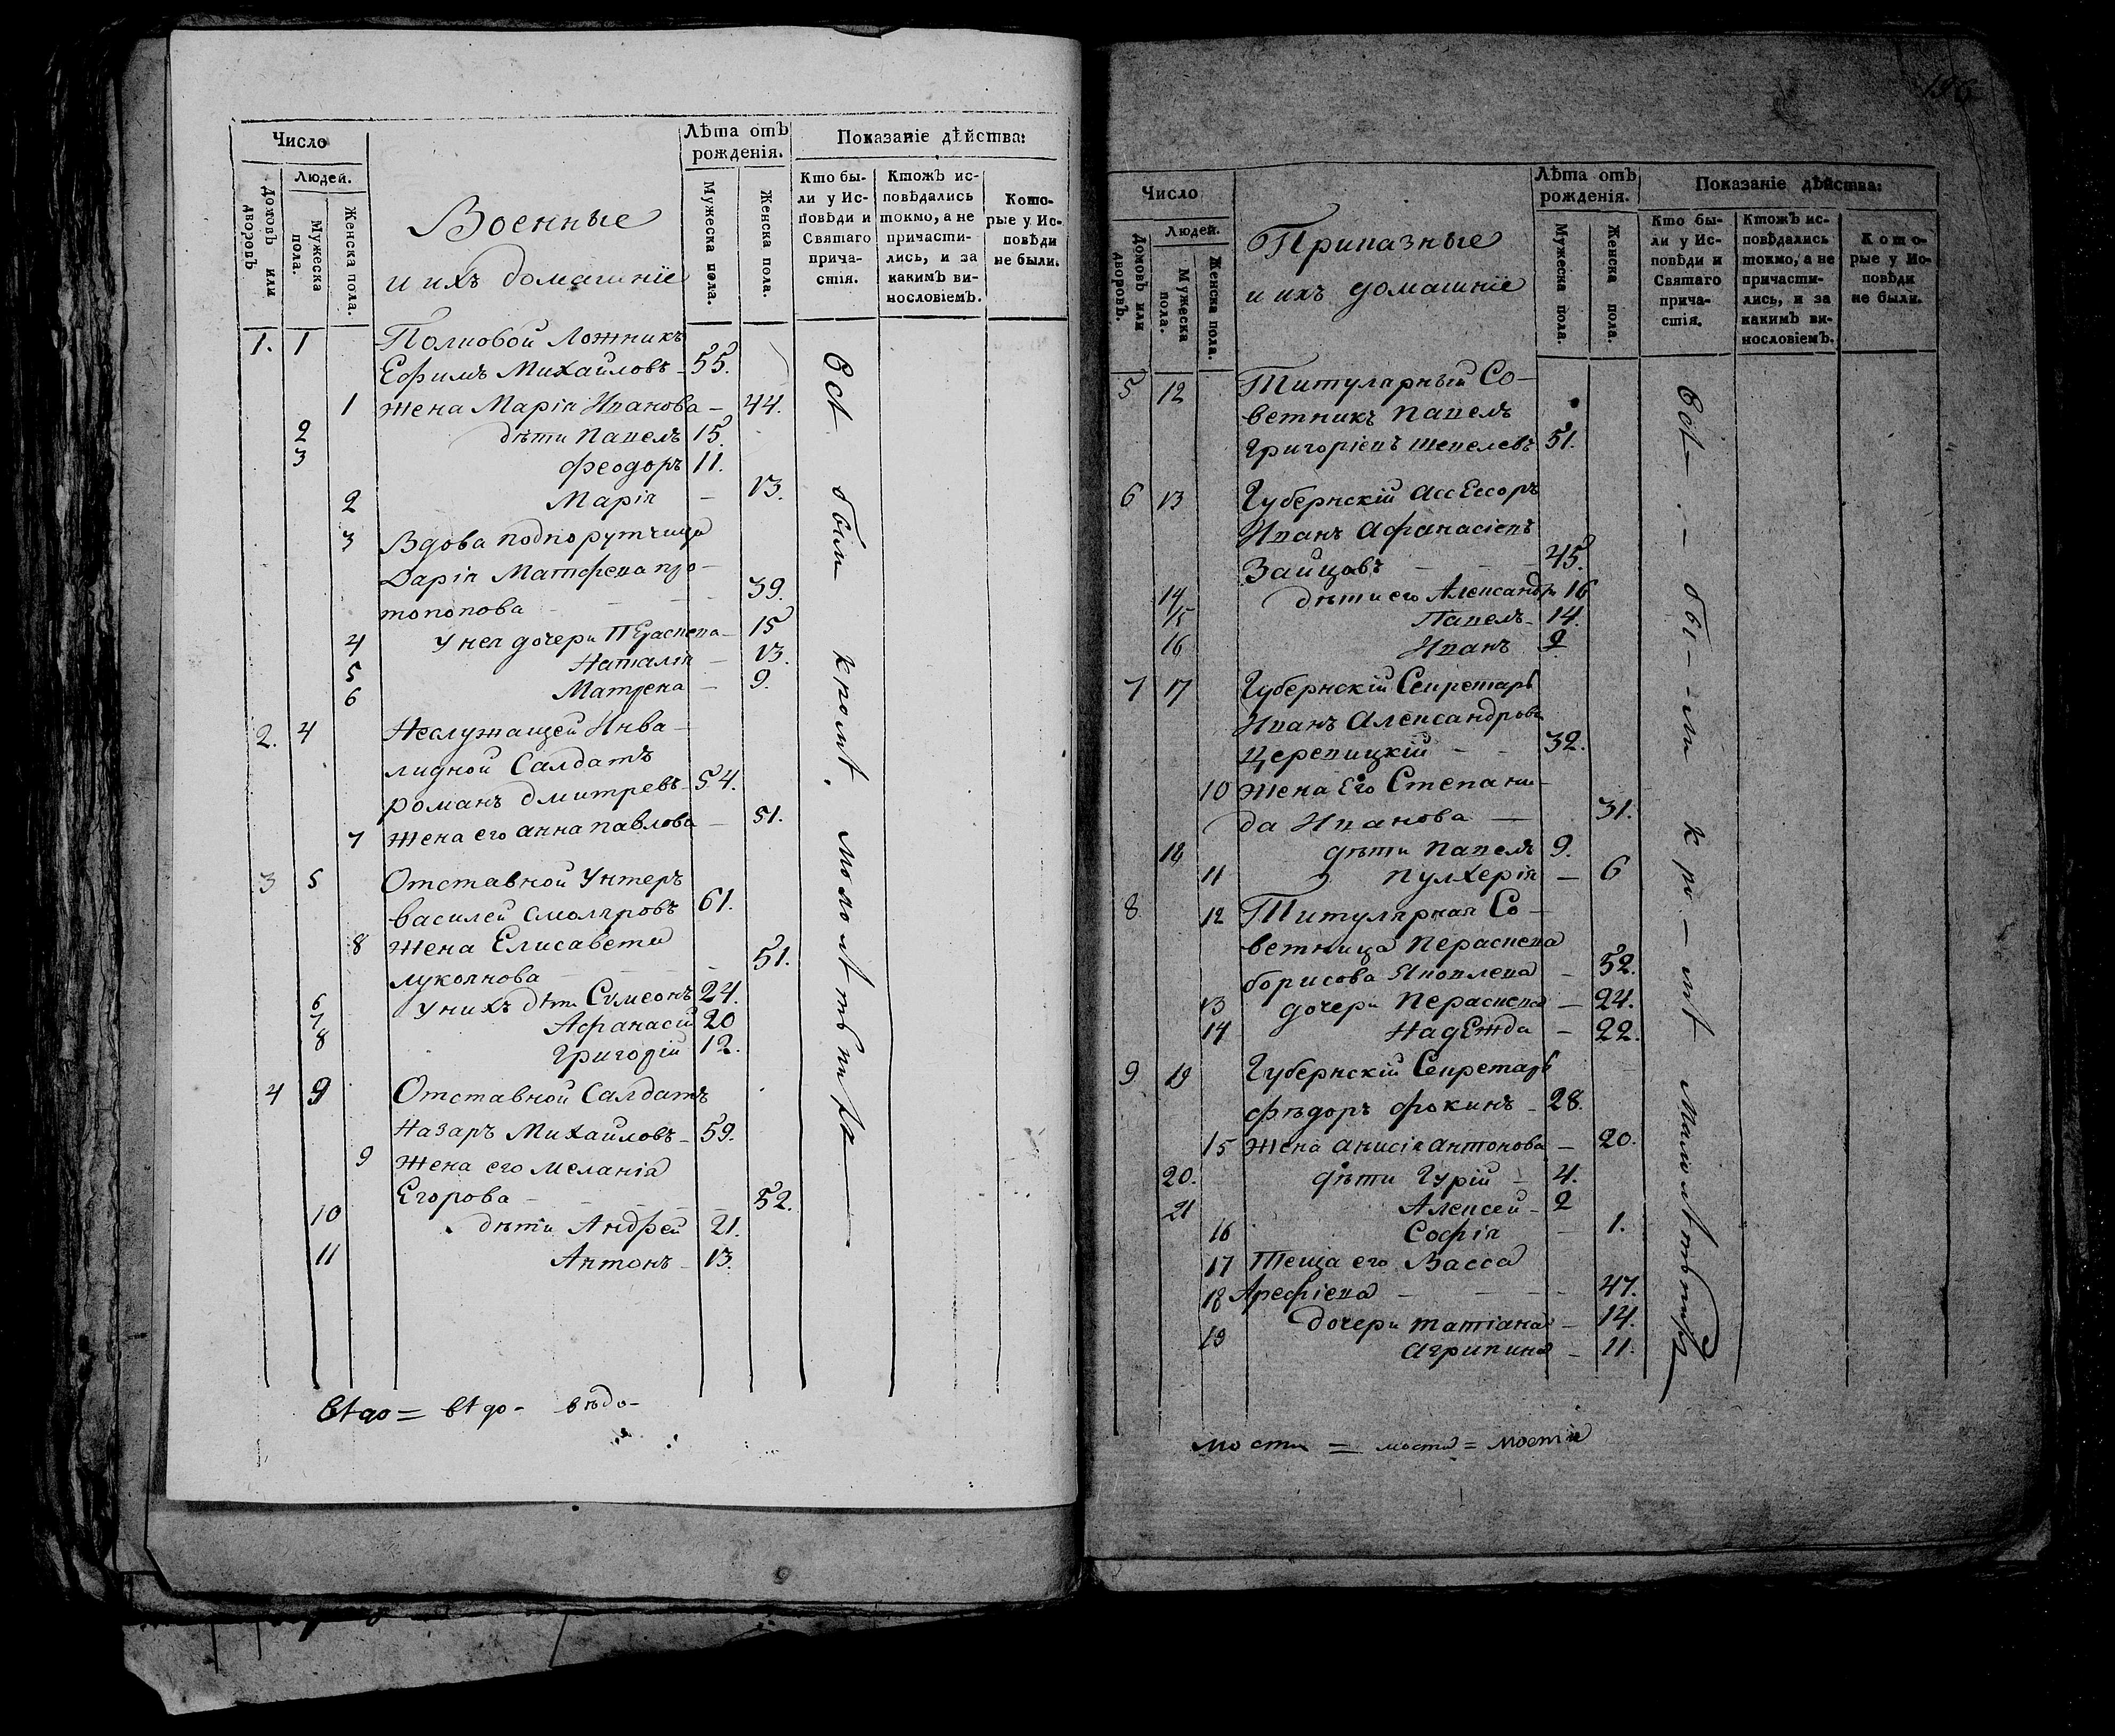 Число
Лѣта отъ рожденія.
Показаніе дѣйства:
Домовъ или дворовъ
Людей.
Мужеска пола.
Женска пола.
Военные
и ихъ домашніе
Мужеска пола.
Женска пола.
Кто бы-
ли у Ис-
повѣди и
Святаго
прича-
стія.
Ктожъ ис-
повѣдались
токмо, а не
причасти-
лись, и за
какимъ ви-
нословіемъ.
Кото-
рые у Ис-
повѣди
не были.
1. 1 Полковой Ложникъ
Ефимъ Михайловъ - 55.
1 жена Марія Иванова - 44.
2 дѣти Павелъ 15.
3 Феодоръ 11.
2 Марія - 13.
3 Вдова подпорутчица
Дарія Матфеева про-
топопова - - - 39.
4 У нея дочери Параскева - 15
5 Наталія - 13.
6 Матрена - 9.
2. 4 Неслужащей Инва-
лидной Салдатъ
романъ дмитревъ - 54.
7 жена его анна павлова - 51.
3 5 Отставной Унтеръ
василей смоляровъ 61.
8 жена Елисавета
лукоянова - - - 51.
6 у нихъ дѣти Сѵмеонъ 24.
7 Афанасій 20
8 Григорій 12.
4 9 Отставной Салдатъ
Назаръ Михайловъ - 59.
9 жена его меланія
Егорова - - - - 52.
10 дѣти Андрей 21.
11 Антонъ - 13.
всѣ были кромѣ мололѣтныхъ
вѣдо = вѣдо - вѣдо -
Число
Лѣта отъ рожденія.
Показаніе дѣйства:
Домовъ или дворовъ.
Людей.
Мужеска пола.
Женска пола.
Приказные
и ихъ домашніе
Мужеска пола.
Женска пола.
Кто бы-
ли у Ис-
повѣди и
Святаго
прича-
стія.
Ктожъ ис-
повѣдались
токмо, а не
причасти-
лись, и за
какимъ ви-
нословіемъ.
Кото-
рые у Ис-
повѣди
не были.
5 12 Титулярный Со-
ветникъ Павелъ
Григоріевъ шепелевъ 51.
6 13 Губернскій ассЕссоръ
Иванъ Афанасіевъ
Зайцовъ - - - 45.
14 дѣти его Александръ 16
15 Павелъ - 14.
16 Иванъ 2
7 17 Губернскій Секретарь
Иванъ Александровъ
Церевицкій - - 32.
10 жена Его Степани-
да Иванова - 31.
18 дѣти Павелъ 9.
11 пулхерія - 6
8 12 Титулярная Со-
ветница Параскева
борисова Яковлева - 52.
13 дочери Параскева - 24.
14 НадЕжда - 22.
9 19 Губернскій Секретарь
Фѣдоръ фокинъ - 28.
15 жена анисія антонова - 20.
20. дѣти Гурій - 4.
21 Алексей - 2
16 Софія - 1.
17 Теща его Васса
18 Арефіева - - - 47.
дочери татіана - 14.
19 агрипина - 11.
всѣ - бы - ли кро - мѣ малолѣтныхъ
мости = мости = мости